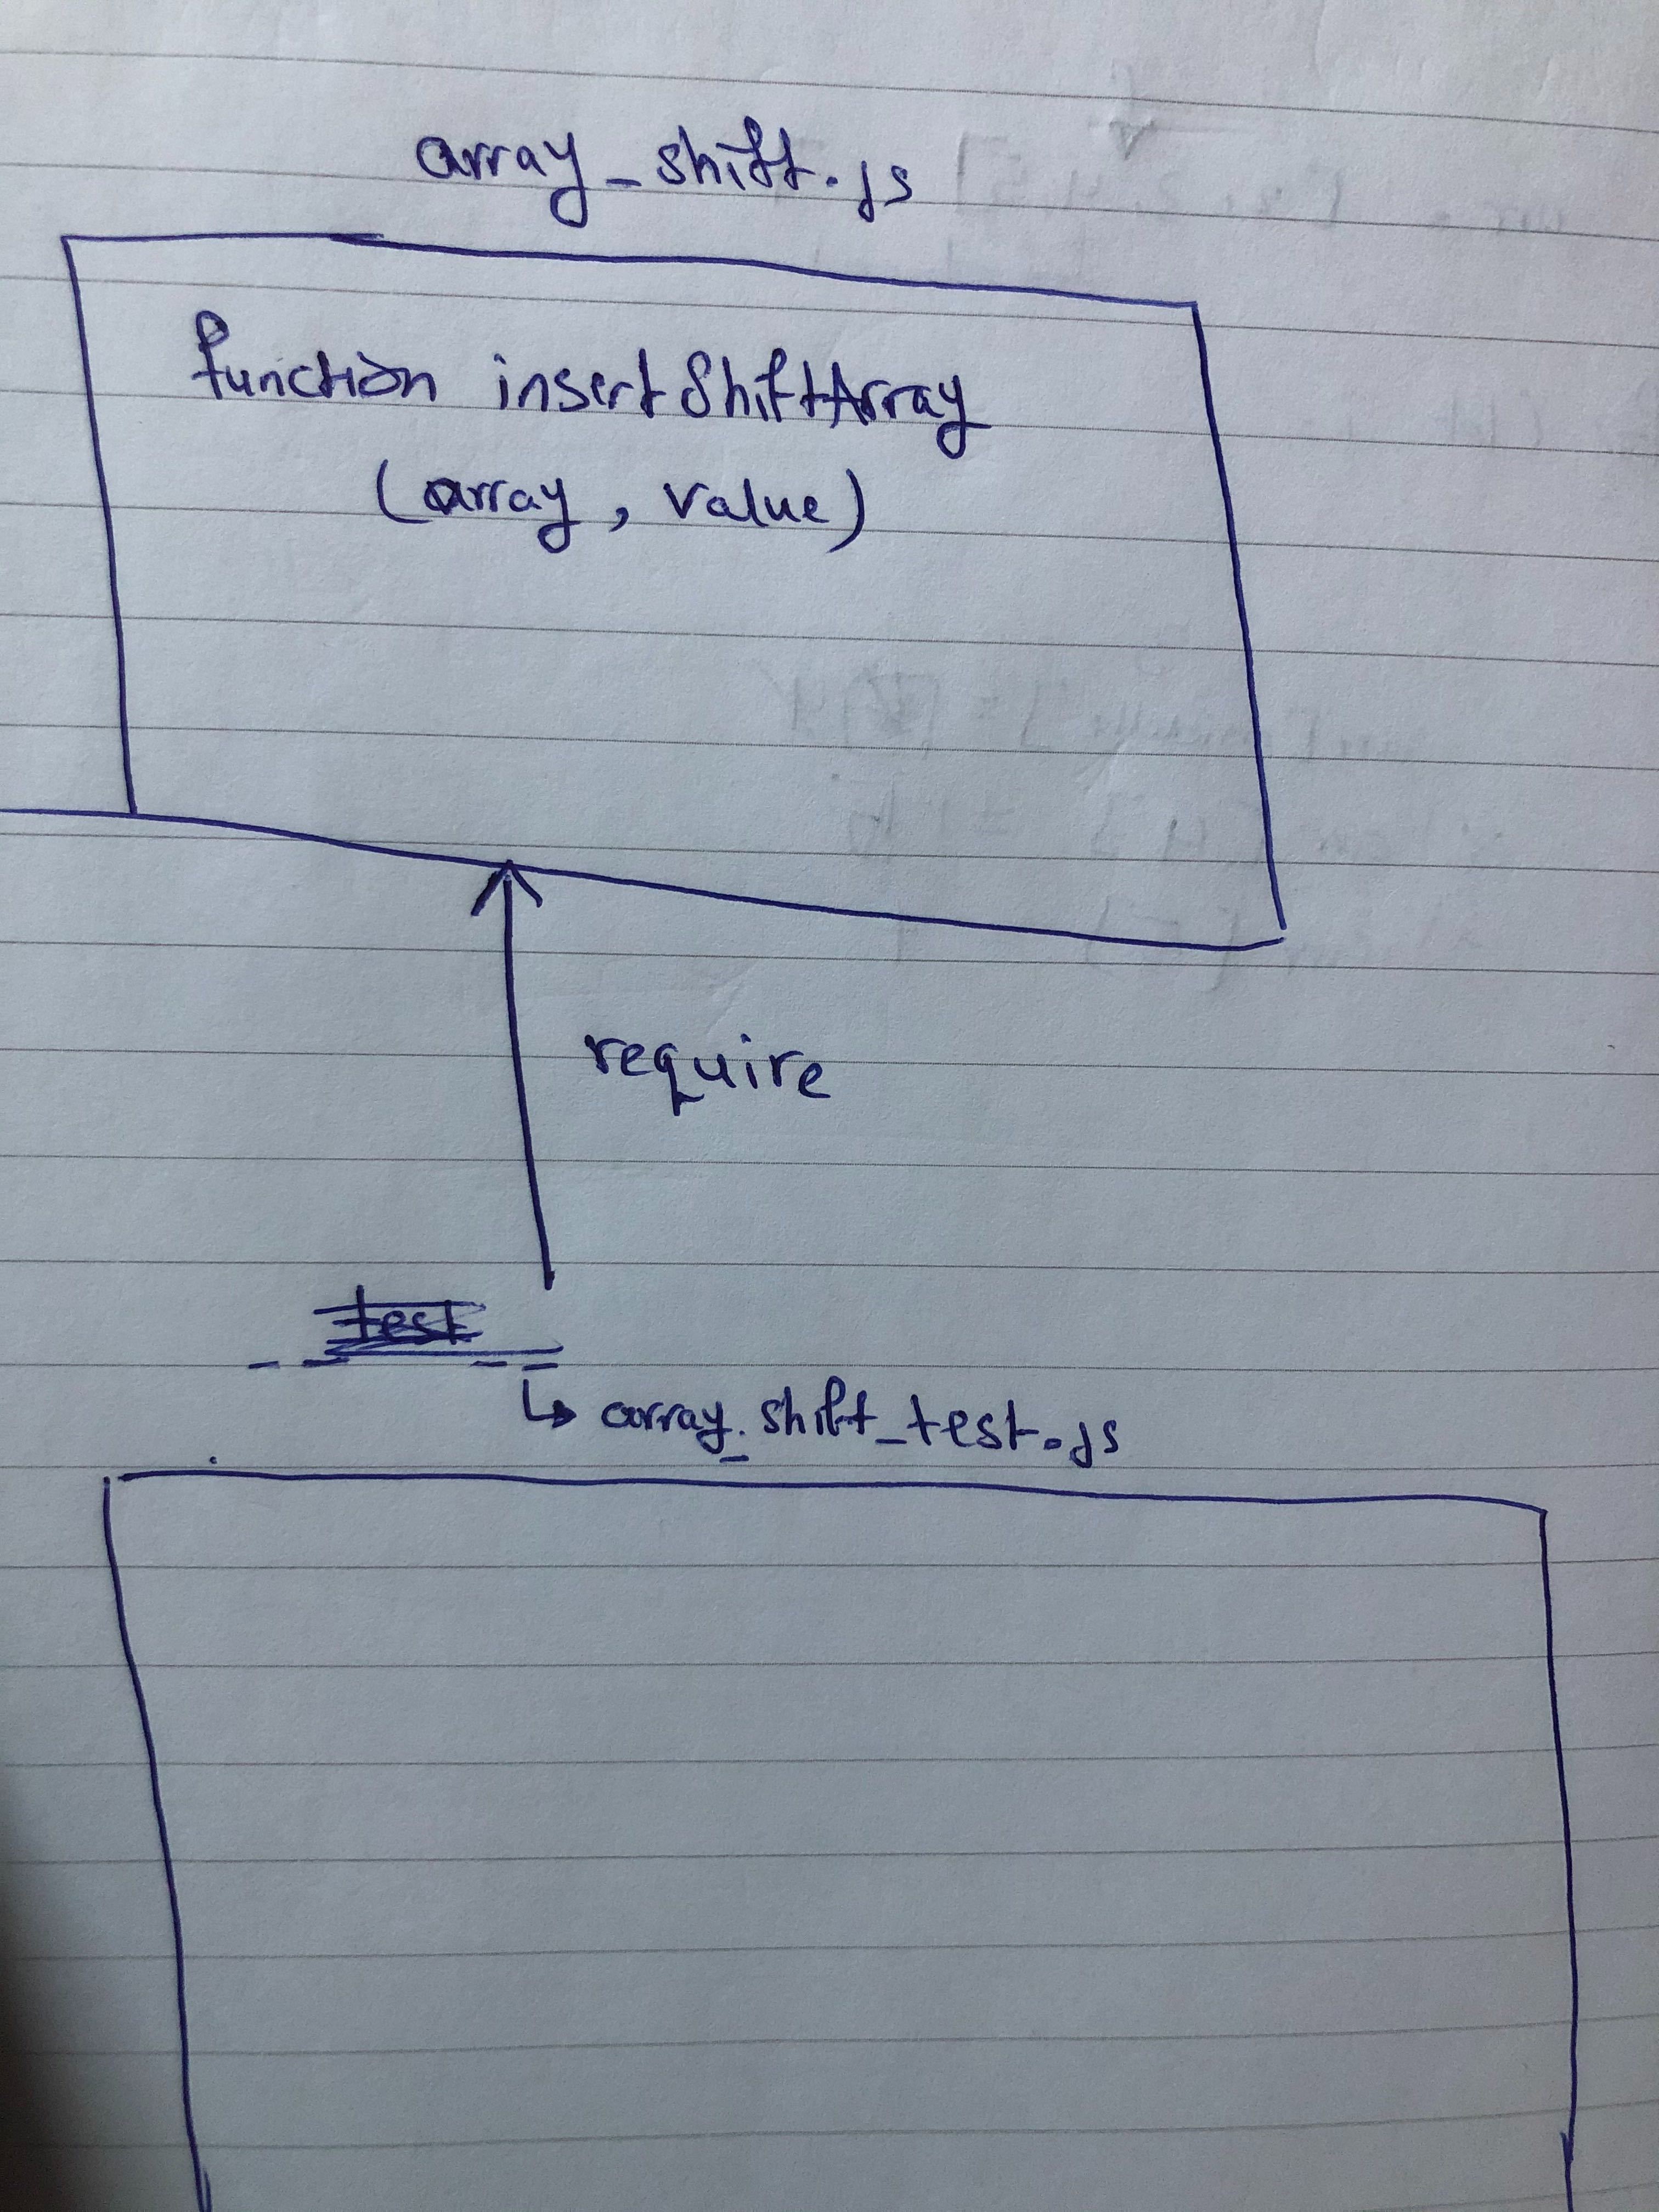 array_shift.js
function insertShiftArray
(array, value)
require
test
↳ array_shift_test.js